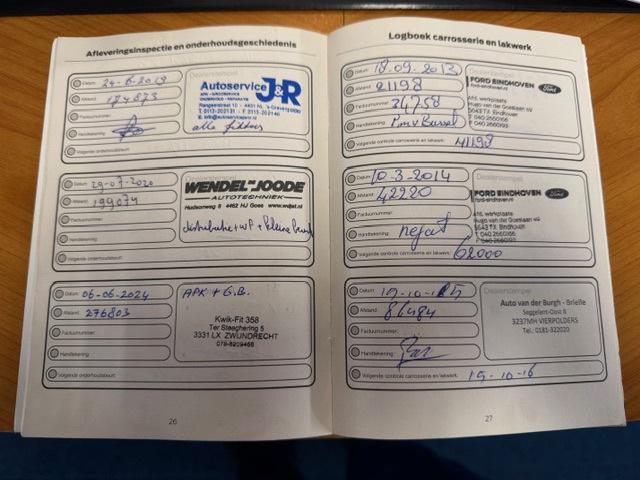 Afleveringsinspectie en onderhoudsgeschiedenis
Datum: 24-6-2019
Afstand: 174673
Factuurnummer:
Handtekening:
Volgende onderhoudsbeurt:
Autoservice J&R
APK - GROOTSERVICE
ONDERHOUD - REPARATIE
alle filters
Datum: 29-07-2020
Afstand: 199074
Factuurnummer:
Handtekening:
Volgende onderhoudsbeurt:
WENDEL DE JOODE
AUTOTECHNIEK
Hudsonweg 8 4462 HJ Goes www.wdjst.nl
distributie + WP + kleine beurt
Datum: 06-06-2024
Afstand: 276803
Factuurnummer:
Handtekening:
Volgende onderhoudsbeurt:
APK + G.B.
Kwik-Fit 358
Ter Steeghering 5
3331 LX ZWIJNDRECHT
078-6209466
26
Logboek carrosserie en lakwerk
Datum: 18.09.2013
Afstand: 21198
Factuurnummer: 24758
Handtekening:
Volgende controle carrosserie en lakwerk: 41198
FORD EINDHOVEN
ford-eindhoven.nl
Ford
Afd. werkplaats
Hugo van der Goeslaan
5643 TX Eindhoven
T 040 2660166
F 040 2660193
Datum: 10.3.2014
Afstand: 42220
Factuurnummer:
Handtekening: nejat
Volgende controle carrosserie en lakwerk: 62000
FORD EINDHOVEN
ford-eindhoven.nl
Ford
Afd. werkplaats
Hugo van der Goeslaan
5643 TX Eindhoven
T 040 2660166
F 040 2660193
Datum: 19-10-15
Afstand: 86484
Factuurnummer:
Handtekening:
Volgende controle carrosserie en lakwerk: 19-10-16
Dealerstempel
Auto van der Burgh - Brielle
Seggelent-Oost 8
3237MH VIERPOLDERS
Tel.: 0181-322020
27